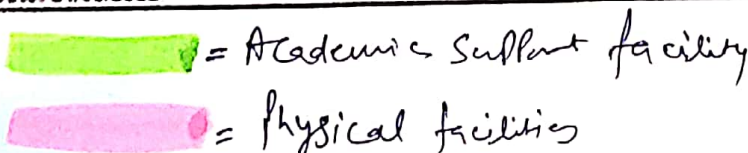 = Academic Support facility
= Physical facilities